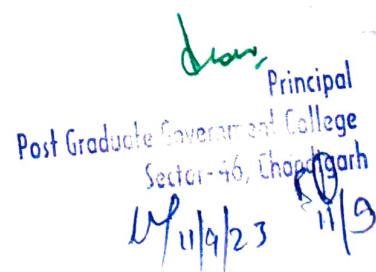 Principal
Post Graduate Government College
Sector-46, Chandigarh
11/9/23
11/9